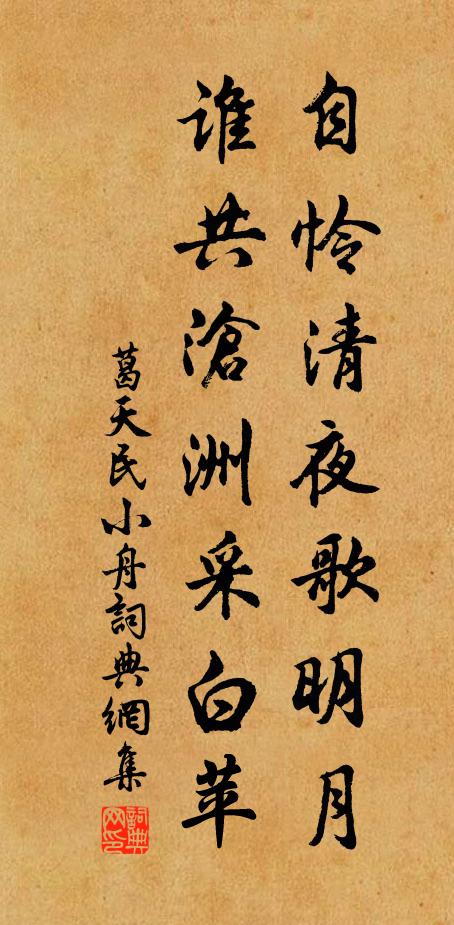 自怜清夜歌明月
誰共滄洲采白苹
葛天民小舟詞典網集
詞典网印